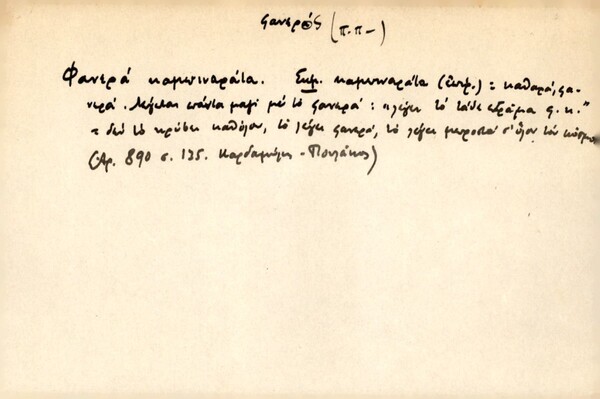 φανερός (π.π-)
Φανερά καμπιναράτα. Σημ. καμπιναράτα (ἐπιρ.) = καθαρά, φα-
νερά. Λέγεται πάντα μαζί μέ τό φανερά: "λέγει τό τάδε πρᾶμα φ. κ."
= δέν τό κρύβει καθόλου, τό λέγει φανερά, τό λέγει μπροστά σ' ὅλον τόν κόσμο
(Ἀρ. 890 σ. 125. Καρδαμύλη - Πουλάκος)